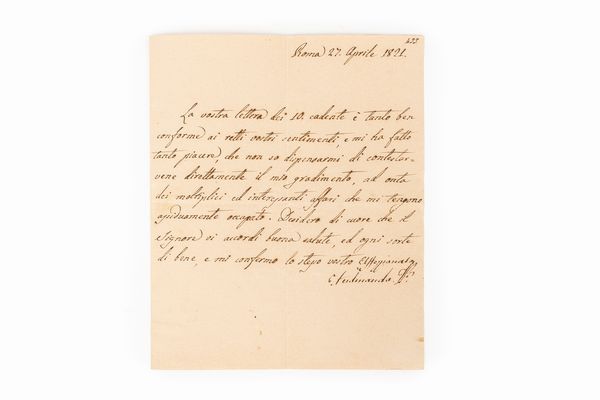 433
Roma 27. Aprile 1821.
La vostra lettera dei 10. cadente è tanto ben
conforme ai retti vostri sentimenti, e mi ha fatto
tanto piacere, che non so dispensarmi di contestar-
vene direttamente il mio gradimento, ad onta
dei moltiplici ed interessanti affari che mi tengono
assiduamente occupato. Desidero di cuore che il
Signore vi accordi buona salute, ed ogni sorte
di bene, e mi confermo lo stesso vostro
Ferdinando